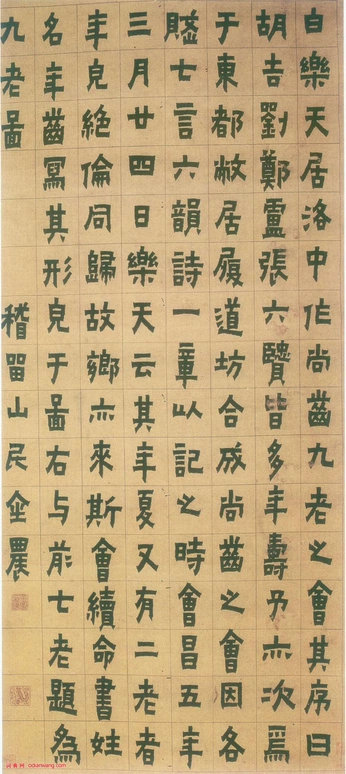 白樂天居洛中作尚齒九老之會其序曰
胡吉劉鄭盧張六賢皆多年壽予亦次焉
于東都敝居履道坊合成尚齒之會因各
賦七言六韻詩一章以記之時會昌五年
三月廿四日樂天云其年夏又有二老者
年皃絕倫同歸故鄉亦來斯會續命書姓
名年齒寫其形皃于啚右与前七老題為
九老啚 稽留山民金農
词典网: cidianwang.com